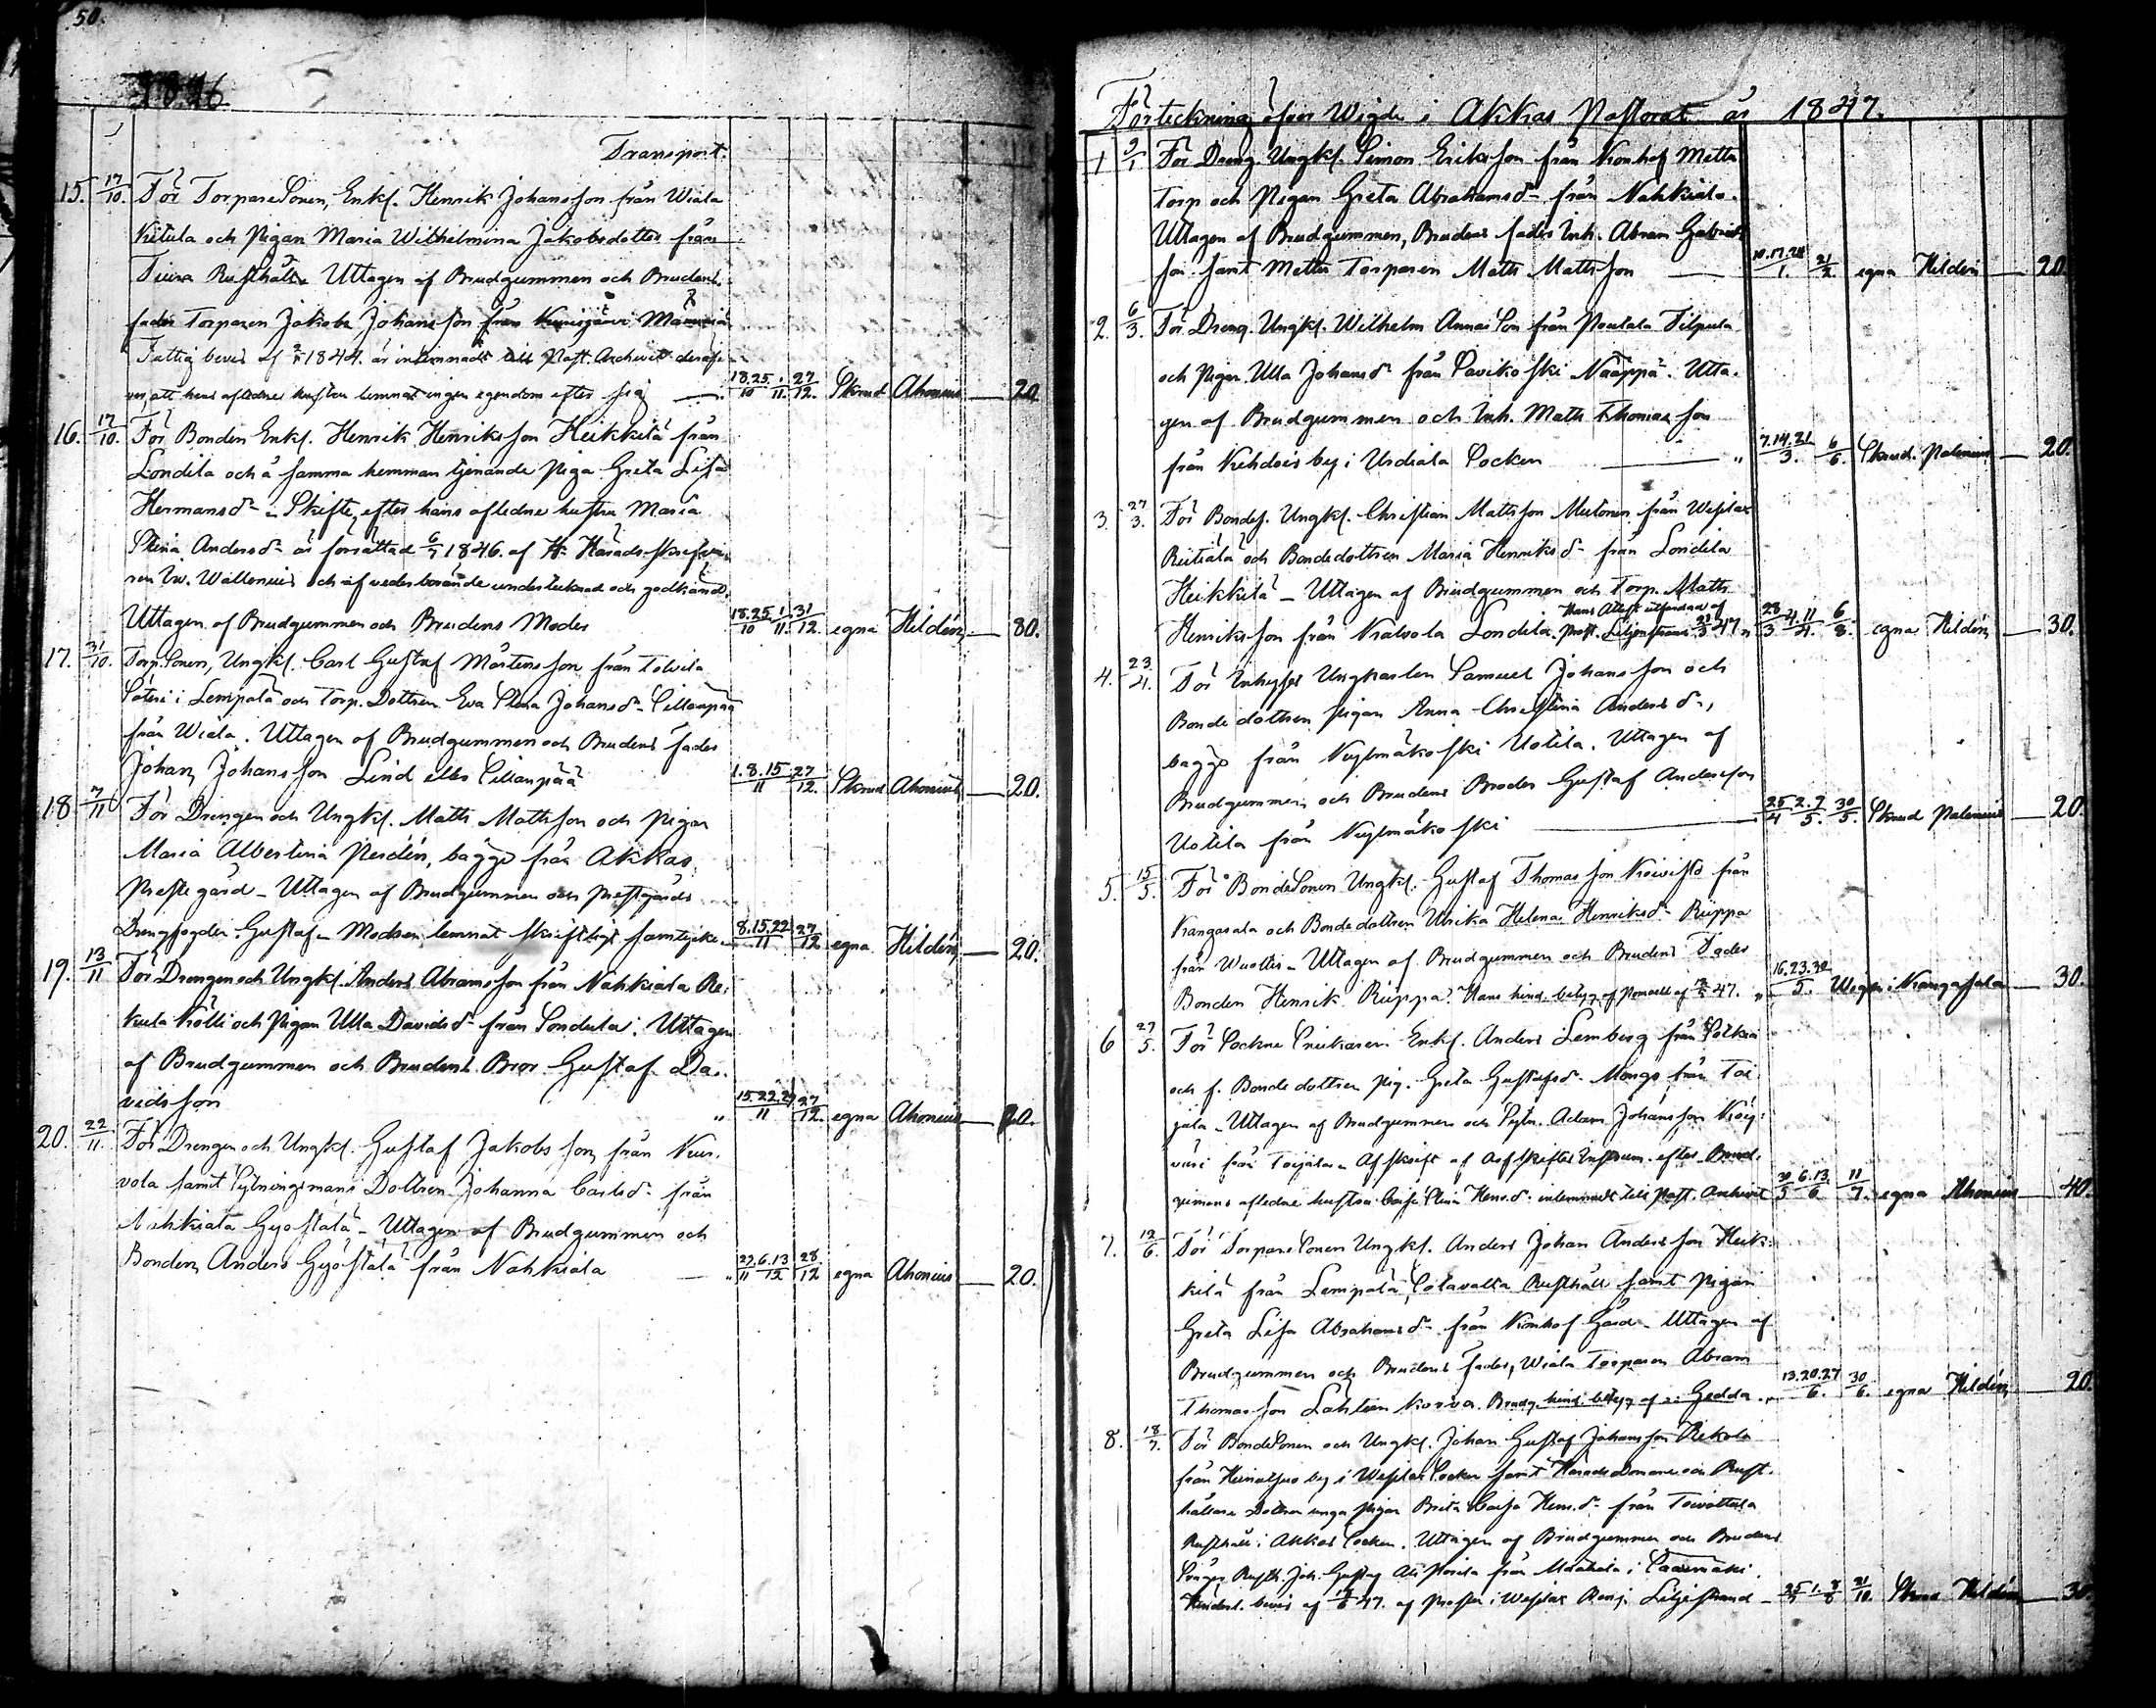 50.
1846
Transport.
15. 17/10. För TorpareSonen, Enkl. Henrik Johansson från Wiala
Kitula och Pigan Maria Wilhelmina Jakobsdotter från
Rusthåll. Uttagen af Brudgummen och Brudens
fader Torparen Jakob Johansson från
Fattig bevis af 1844. är inlemnadt till Past. Archivet
att hans afledna hustru lemnat ingen egendom efter sig 18.25./10 1/11. 27/12. Skrud Ahonius — 20
16. 17/10. För Bonden Enkl. Henrik Henriksson Heikkilä från
Londila och å samma hemman tjenande piga Greta Lisa
Hermansdr - Skifte, efter hans afledne hustru Maria
Stina Andersdr är förrättad 6/7 1846. af Häradsskrifva-
ren Wallenius och af vederbörande undertecknad och godkänd.
Uttagen af Brudgummen och Brudens Moder 18.25/10 1/11. 31/12. egna Hildén — 80.
17. 31/10. Torp.Sonen, Ungkl. Carl Gustaf Mårtensson från Tolvila
Säteri i Lempälä och Torp. Dottren Eva Stina Johansdr Cillanpää
från Wiala. Uttagen af Brudgummen och Brudens fader
Johan Johansson Lind eller Cillanpää 1.8.15/11 27/12. Skrud Ahonius — 20.
18 7/11 För Drengen och Ungkl. Matts Mattsson och pigan
Maria Albertina Perdén, bägge från Akkas
Prestegård - Uttagen af Brudgummen och Prestgårds
Drengfogden Gustaf - Modren lemnat skriftligt samtycke 8.15.22/11 27/12 egna Hildén — 20.
19. 13/11 För Drengen och Ungkl. Anders Abramsson från Nahkiala Re-
kula Kölli och Pigan Ulla Davidsdr från Sondula. Uttagen
af Brudgummen och Brudens Bror Gustaf Da-
vidsson „ 15.22.29/11 27/12. egna Ahonius — 20.
20. 22/11. För Drengen och Ungkl. Gustaf Jakobsson från Kur-
vola samt Sytningsmans Dottren Johanna Carlsdr från
Nahkiala Gyöstälä - Uttagen af Brudgummen och
Bonden Anders Gyöstälä från Nahkiala — „ 29/11 6.13/12 28/12 egna Ahonius — 20.
Förteckning öfver Wigde i Akkas Pastorat år 1847.
1 9/1 För Dreng. Ungkl. Simon Eriksson från Kronhof Mattu
Torp och Pigan Greta Abrahamsdr från Nahkiala.
Uttagen af Brudgummen, Brudens fader Inh. Abram Gabriels-
son samt Mattu Torparen Matts Mattsson — 10.17.24/1. 21/2 egna Hildén — 20
2. 6/3. För Dreng. Ungkl. Wilhelm Annas Son från Pentala Filpula
och pigan Ulla Johansdr från Savikoski Nääppä. Utta-
gen af Brudgummen och Inh. Matts Thomasson
från Kehdois by i Urdiala Socken — „ 7.14.21/3. 6/6. Skrud. Palenius — 20.
3. 27/3. För Bondes. Ungkl. Christian Mattsson Mutonen från Wesilax
och Bondedottren Maria Henriksdr från Londila
Heikkilä - Uttagen af Brudgummen och Torp. Matts
Henriksson från Londila. Hans Attest utfärdad af Past. Liljestrand 47 „ 28/3 4.11/4. 6/8. egna Hildén — 30.
4. 23/4. För Inhyses Ungkarlen Samuel Johansson och
Bondedottren pigan Anna Christina Andersdr,
bägge från Kylmäkoski Uotila. Uttagen af
Brudgummen och Brudens Broder Gustaf Andersson
Uotila från Kylmäkoski — 25/4 2.9/5. 30/5. Skrud Palenius — 20.
5. 15/5. För BondeSonen Ungkl. Gustaf Thomasson Koivisto från
Kangasala och Bondedottren Ulrika Helena Henriksdr Riippa
från Wuoltis - Uttagen af Brudgummen och Brudens Fader
Bonden Henrik Riippa. Hans hind. betyg af 47. „ 16.23.30/5. Wigen i Kangasala — 30.
6 27/5. För Enkl. Anders Lemberg från
och f. Bondedottren pig. Greta Gustafsdr Mongo från Toi-
jala - Uttagen af Brudgummen och Sytn. Adam Johansson
från Toijala - Afskrift af Arfskiftes Instrum. efter Brud-
gumens aflednе hustru Caisa Stina Henr.dr inlemnadt till Past. Archivet 30/5 6.13./6 11/7. egna Ahonius — 40.
7. 12/6. För TorpareSonen Ungkl. Anders Johan Andersson Heik-
kilä från Lempälä, Sotavalta Rusthåll samt pigan
Greta Lisa Abrahamsdr från Kronhof Gård - Uttagen af
Brudgummen och Brudens fader, Wiala Torparen Abram
Thomasson Lahteen Korva. Brudg. hind. betyg af Gedda 13.20.27/6. 30/6. egna Hildén — 20.
8. 18/7. För BondeSonen och Ungkl. Johan Gustaf Johansson Rekola
från by i Wesilax Socken samt Häradsdomare och Rust-
hållare Dottren unga pigan Brita Caisa Henr.dr från Toivottula
Rusthåll i Akkas Socken. Uttagen af Brudgummen och Brudens
Svåger Rusth. Joh. Gustaf från i Saarimäki.
Hinderl. bevis af 47. af Prosten i Wesilax Liljestrand - 25/7 1.8/8 31/10. Skrud Hildén — 30.